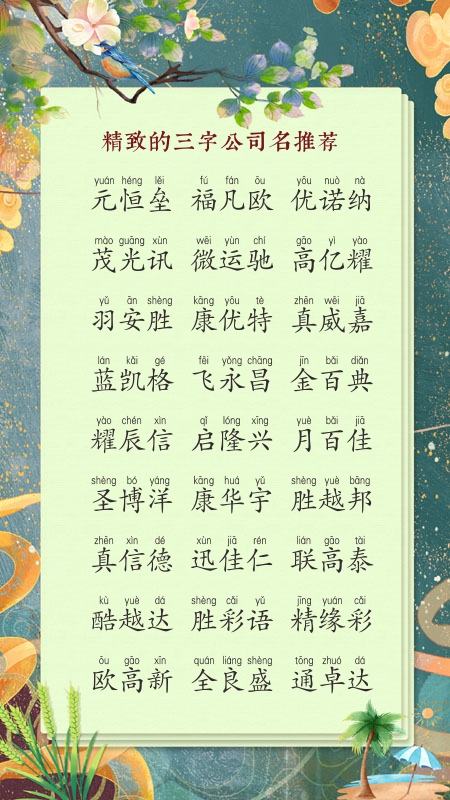 精致的三字公司名推荐
yuán héng lěi fú fán ōu yōu nuò nà
元恒垒 福凡欧 优诺纳
mào guāng xùn wēi yùn chí gāo yì yào
茂光讯 微运驰 高亿耀
yǔ ān shèng kāng yōu tè zhēn wēi jiā
羽安胜 康优特 真威嘉
lán kǎi gé fēi yǒng chāng jīn bǎi diǎn
蓝凯格 飞永昌 金百典
yào chén xìn qǐ lóng xīng yuè bǎi jiā
耀辰信 启隆兴 月百佳
shèng bó yáng kāng huá yǔ shèng yuè bāng
圣博洋 康华宇 胜越邦
zhēn xìn dé xùn jiā rén lián gāo tài
真信德 迅佳仁 联高泰
kù yuè dá shèng cǎi yǔ jīng yuán cǎi
酷越达 胜彩语 精缘彩
ōu gāo xīn quán liáng shèng tōng zhuó dá
欧高新 全良盛 通卓达